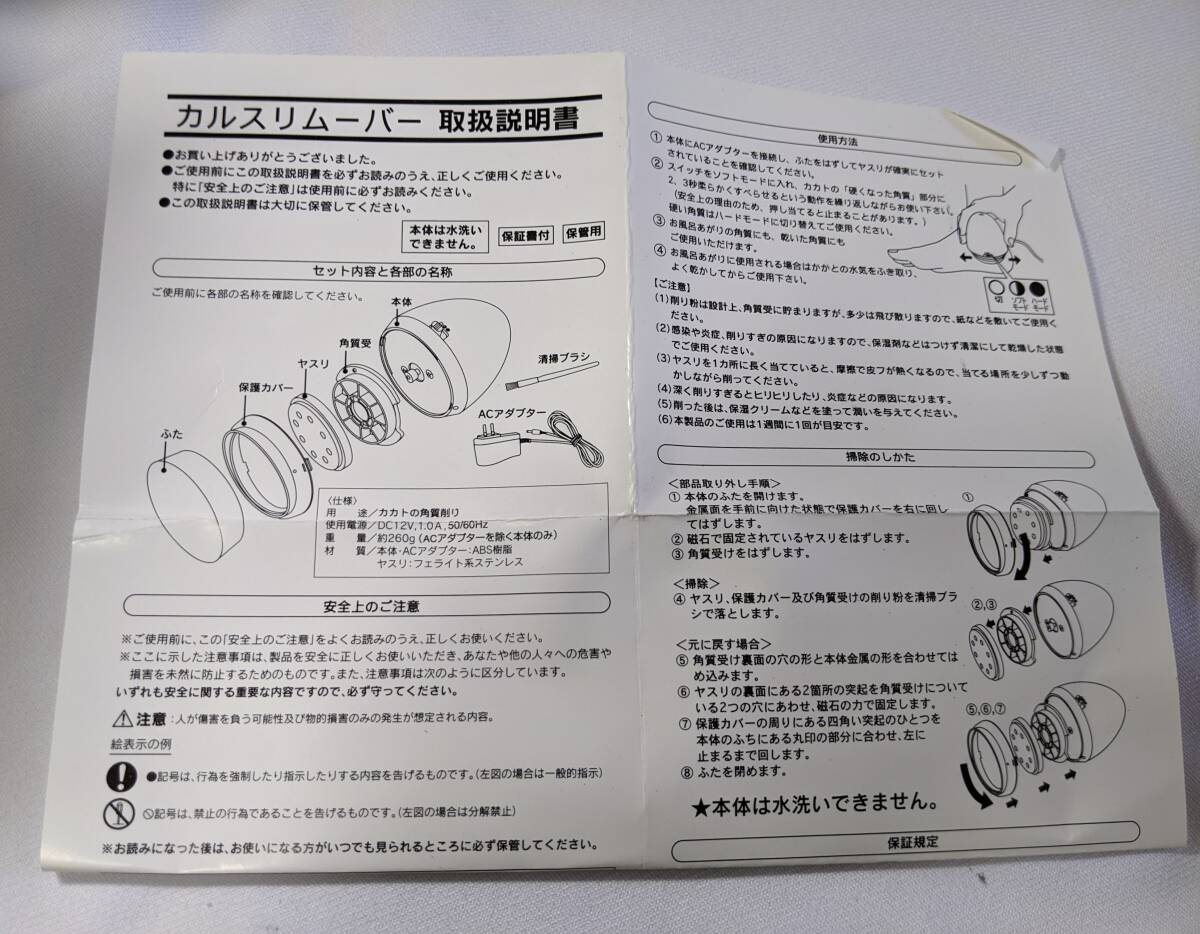 カルスリムーバー 取扱説明書
●お買い上げありがとうございました。
●ご使用前にこの取扱説明書を必ずお読みのうえ、正しくご使用ください。
特に「安全上のご注意」は使用前に必ずお読みください。
●この取扱説明書は大切に保管してください。
本体は水洗い
できません。
保証書付
保管用
セット内容と各部の名称
ご使用前に各部の名称を確認してください。
本体
角質受
ヤスリ
保護カバー
ふた
清掃ブラシ
ACアダプター
〈仕様〉
用　　途／カカトの角質削り
使用電源／DC12V,1.0A,50/60Hz
重　　量／約260g(ACアダプターを除く本体のみ)
材　　質／本体・ACアダプター:ABS樹脂
ヤスリ:フェライト系ステンレス
安全上のご注意
※ご使用前に、この「安全上のご注意」をよくお読みのうえ、正しくお使いください。
※ここに示した注意事項は、製品を安全に正しくお使いいただき、あなたや他の人々への危害や
損害を未然に防止するためのものです。また、注意事項は次のように区分しています。
いずれも安全に関する重要な内容ですので、必ず守ってください。
⚠注意:人が傷害を負う可能性及び物的損害のみの発生が想定される内容。
絵表示の例
●記号は、行為を強制したり指示したりする内容を告げるものです。(左図の場合は一般的指示)
🛇記号は、禁止の行為であることを告げるものです。(左図の場合は分解禁止)
※お読みになった後は、お使いになる方がいつでも見られるところに必ず保管してください。
使用方法
① 本体にACアダプターを接続し、ふたをはずしてヤスリが確実にセット
されていることを確認してください。
② スイッチをソフトモードに入れ、カカトの「硬くなった角質」部分に
2、3秒柔らかくすべらせるという動作を繰り返しながらお使い下さい。
(安全上の理由のため、押し当てると止まることがあります。)
硬い角質はハードモードに切り替えてご使用ください。
③ お風呂あがりの角質にも、乾いた角質にも
ご使用いただけます。
④ お風呂あがりに使用される場合はかかとの水気をふき取り、
よく乾かしてからご使用下さい。
切
ソフト
モード
ハード
モード
【ご注意】
(1)削り粉は設計上、角質受に貯まりますが、多少は飛び散りますので、紙などを敷いてご使用く
ださい。
(2)感染や炎症、削りすぎの原因になりますので、保湿剤などはつけず清潔にして乾燥した状態
でご使用ください。
(3)ヤスリを1カ所に長く当てていると、摩擦で皮フが熱くなるので、当てる場所を少しずつ動
かしながら削ってください。
(4)深く削りすぎるとヒリヒリしたり、炎症などの原因になります。
(5)削った後は、保湿クリームなどを塗って潤いを与えてください。
(6)本製品のご使用は1週間に1回が目安です。
掃除のしかた
＜部品取り外し手順＞
① 本体のふたを開けます。
金属面を手前に向けた状態で保護カバーを右に回し
てはずします。
② 磁石で固定されているヤスリをはずします。
③ 角質受けをはずします。
①
＜掃除＞
④ ヤスリ、保護カバー及び角質受けの削り粉を清掃ブラ
シで落とします。
②,③
＜元に戻す場合＞
⑤ 角質受け裏面の穴の形と本体金属の形を合わせては
め込みます。
⑥ ヤスリの裏面にある2箇所の突起を角質受けについて
いる2つの穴にあわせ、磁石の力で固定します。
⑦ 保護カバーの周りにある四角い突起のひとつを
本体のふちにある丸印の部分に合わせ、左に
止まるまで回します。
⑧ ふたを閉めます。
⑤,⑥,⑦
★本体は水洗いできません。
保証規定